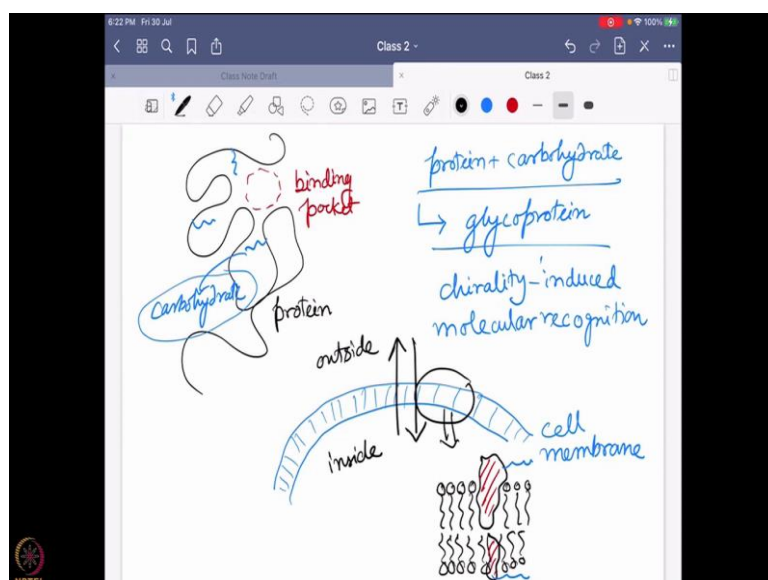 6:22 PM Fri 30 Jul
100%
Class 2
Class Note Draft
Class 2
binding
pocket
carbohydrate
protein
protein + carbohydrate
glycoprotein
chirality-induced
molecular recognition
outside
inside
cell
membrane
NPTEL